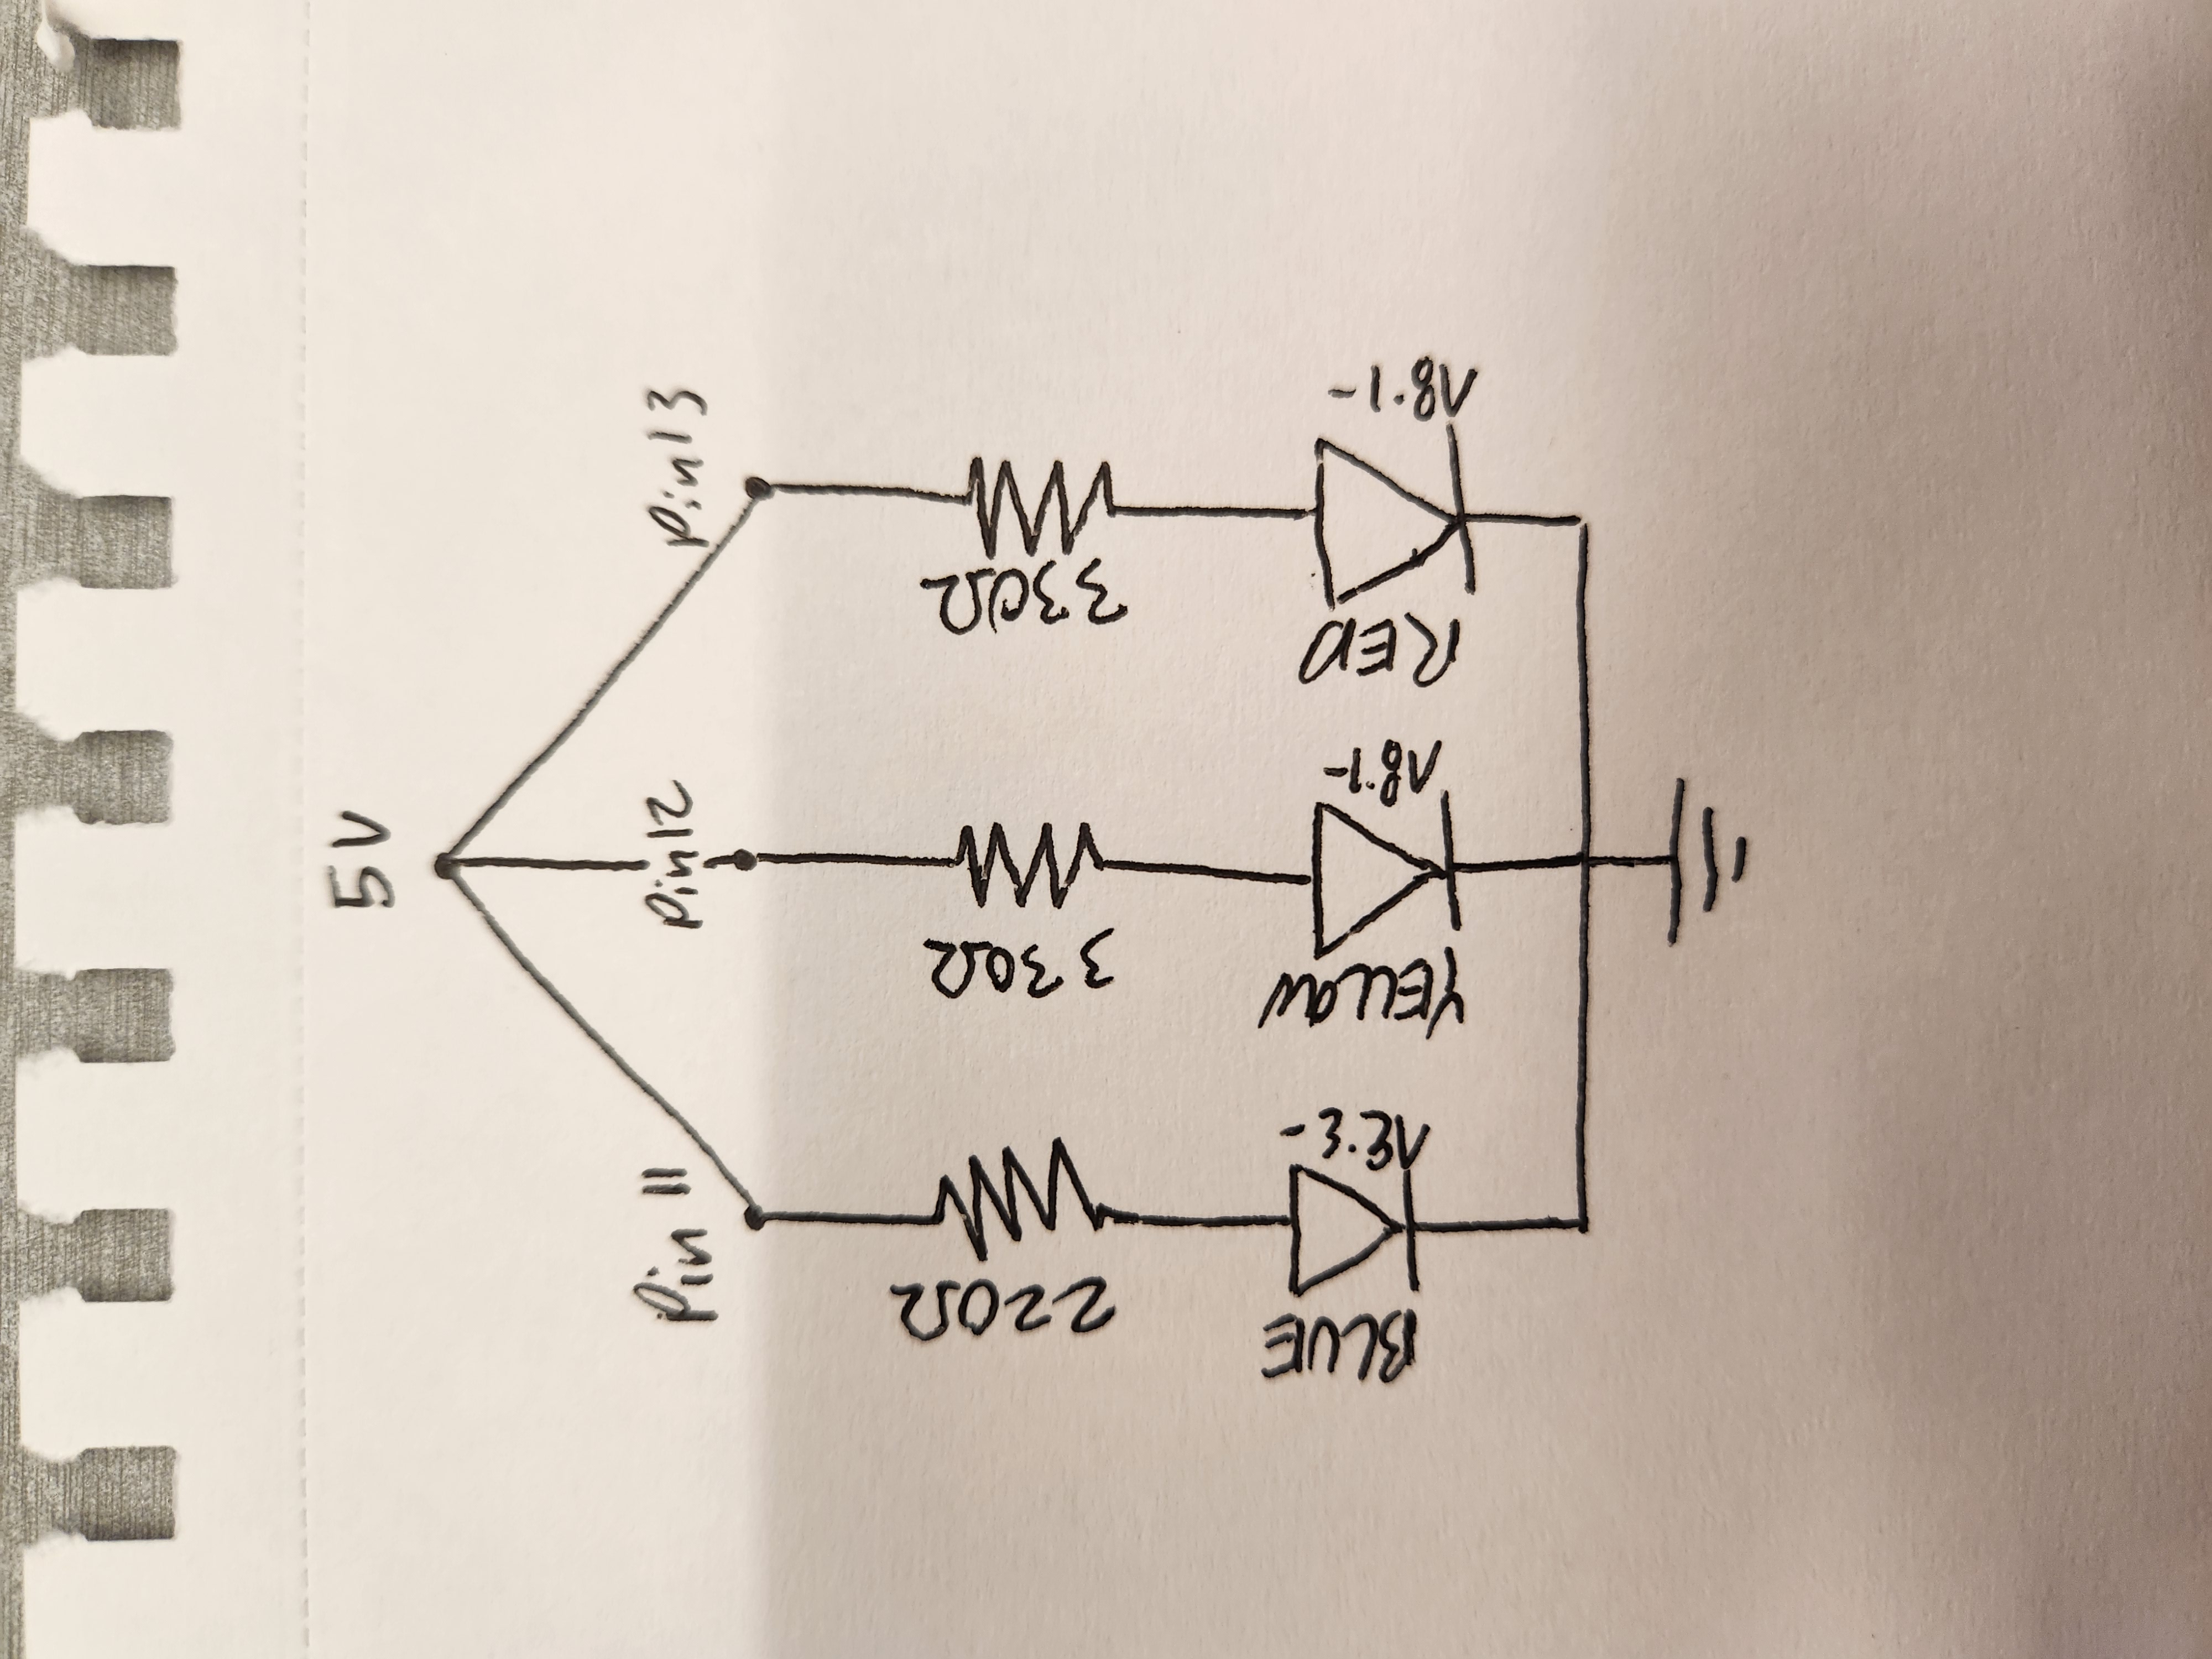 5V
Pin 11
Pin 12
Pin 13
220Ω
330Ω
330Ω
BLUE
-3.3V
YELLOW
-1.8V
RED
-1.8V